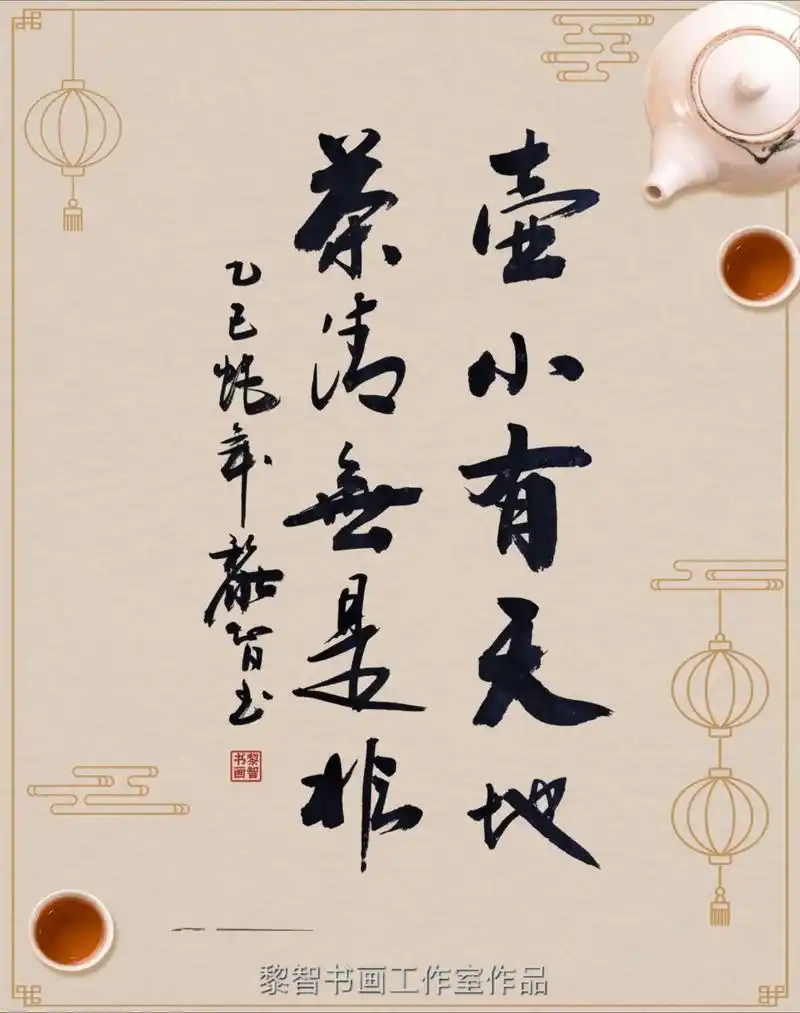 壶小有天地
茶清無是非
乙巳蛇年黎智书
黎智书画
黎智书画工作室作品